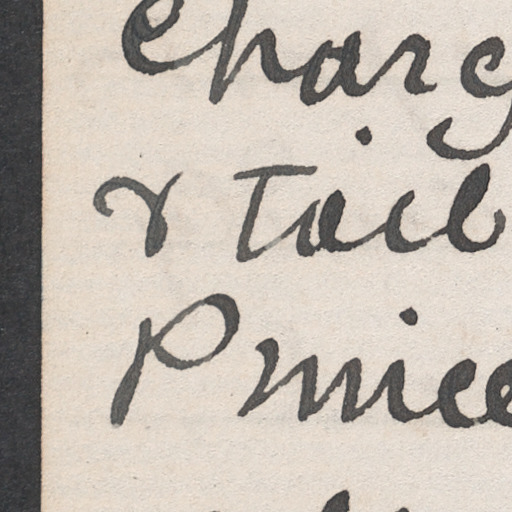 Charg
& Tail
Prince